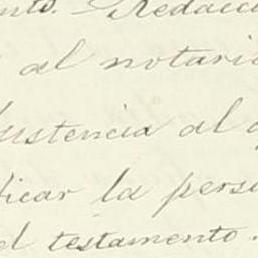 nto. Redacci
al notari
sistencia al o
ficar la pers
el testamento.